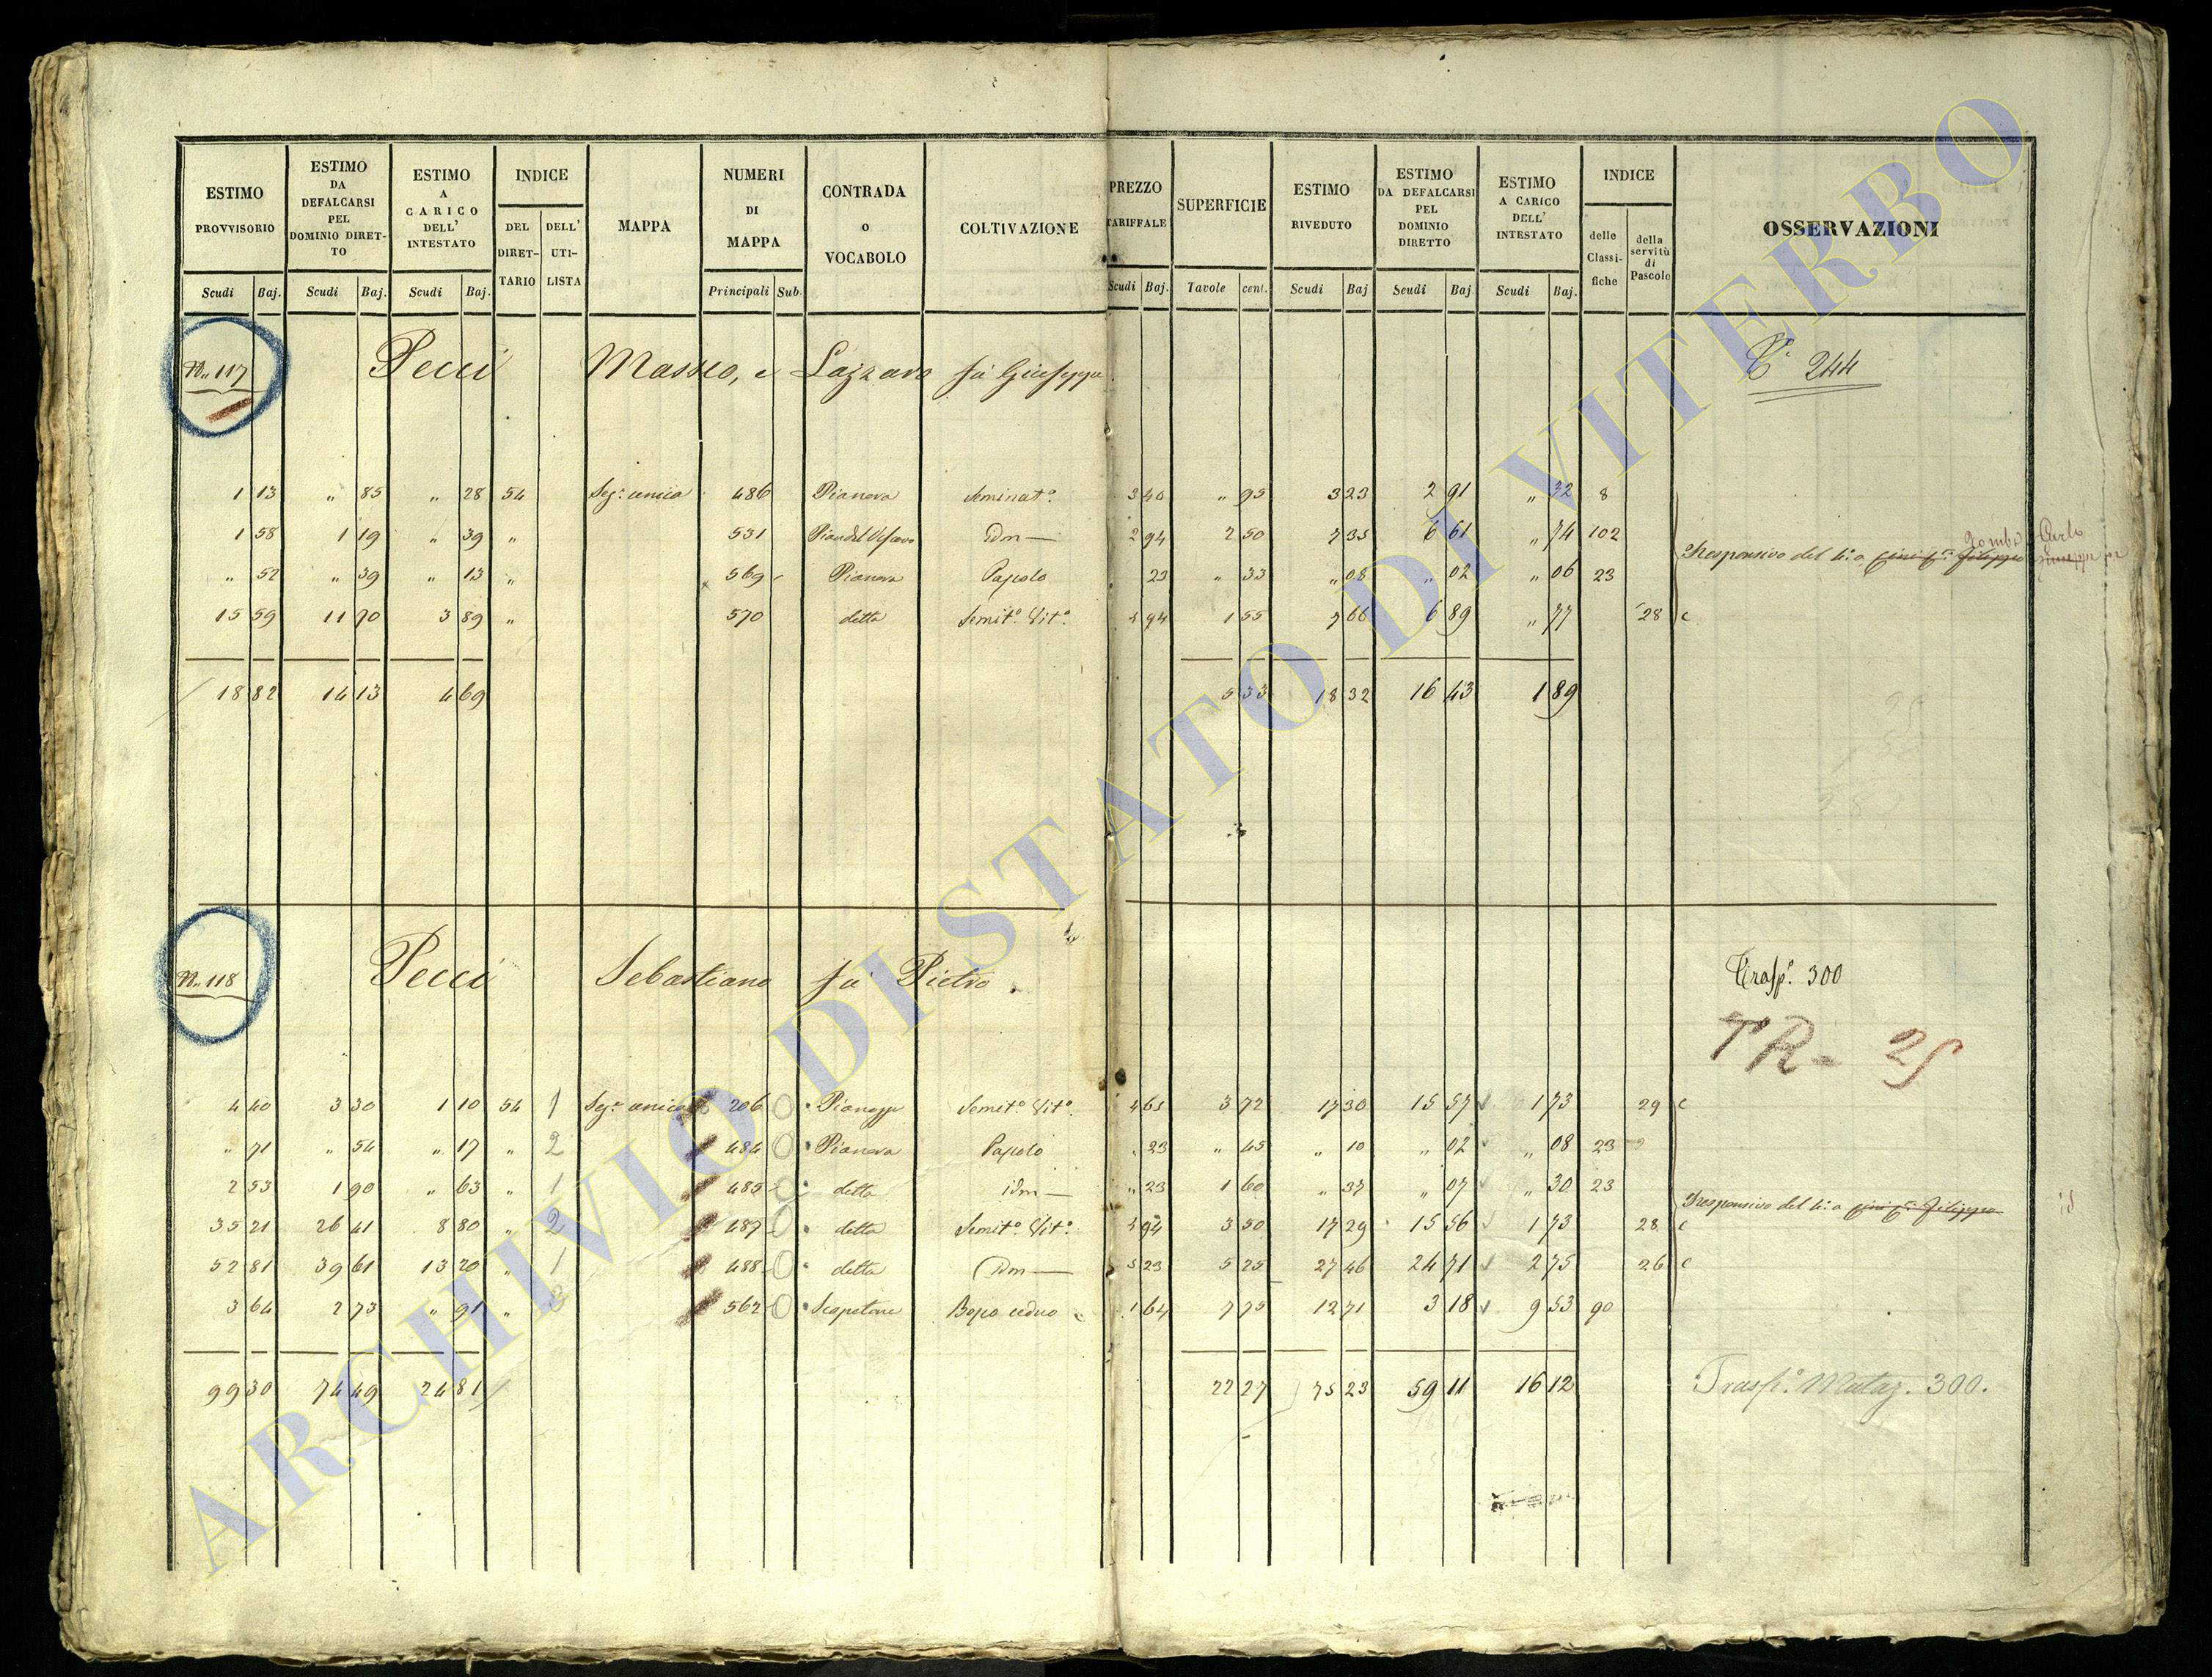 ESTIMO PROVVISORIO | ESTIMO DA DEFALCARSI PEL DOMINIO DIRETTO | ESTIMO A CARICO DELL' INTESTATO | INDICE | MAPPA | NUMERI DI MAPPA | CONTRADA o VOCABOLO | COLTIVAZIONE | PREZZO TARIFFALE | SUPERFICIE | ESTIMO RIVEDUTO | ESTIMO DA DEFALCARSI PEL DOMINIO DIRETTO | ESTIMO A CARICO DELL' INTESTATO | INDICE | OSSERVAZIONI
DEL DIRETTARIO | DELL' UTILISTA | delle Classifiche | della servitù di Pascolo
Scudi | Baj. | Scudi | Baj. | Scudi | Baj. | Principali | Sub. | Scudi | Baj. | Tavole | cent. | Scudi | Baj | Scudi | Baj. | Scudi | Baj.
N.. 117 Pecci Masseo, e Lazzaro fu Giuseppe 244
1 13 | " 85 | " 28 | 54 | Sez.e unica | 486 | Pianora | Seminat.o | 3 40 | " 95 | 3 23 | 2 91 | " 32 | 8
1 58 | 1 19 | " 39 | " | 531 | Pian del Vescovo | idm | 2 94 | 2 50 | 7 35 | 6 61 | " 74 | 102
" 52 | " 39 | " 13 | " | 569 | Pianora | Pascolo | 23 | " 33 | " 08 | " 02 | " 06 | 23
Responsivo del 4.o a Filippo Zombi Carlo Giuseppe
15 59 | 11 70 | 3 89 | " | 570 | detta | Semit.o Vit.o | 4 94 | 1 55 | 7 66 | 6 89 | " 77 | 28 c
18 82 | 14 13 | 4 69 | 5 33 | 18 32 | 16 43 | 1 89
N.. 118 Pecci Sebastiano fu Pietro. Trasp.o 300
TR - 25
4 40 | 3 30 | 1 10 | 54 | 1 | Sez.e unica | 206 | Pianezze | Semit.o Vit.o | 4 65 | 3 72 | 17 30 | 15 57 | 1 73 | 29 c
" 71 | " 54 | " 17 | " | 2 | 484 | Pianora | Pascolo | " 23 | " 45 | " 10 | " 02 | " 08 | 23
2 53 | 1 90 | " 63 | " | 1 | 485 | detta | idm | " 23 | 1 60 | " 37 | " 07 | " 30 | 23
Responsivo del 4.o a Filippo id
35 21 | 26 41 | 8 80 | " | 2 | 487 | detta | Semit.o Vit.o | 4 94 | 3 50 | 17 29 | 15 56 | 1 73 | 28 c
52 81 | 39 61 | 13 20 | " | 1 | 488 | detta | idm | 5 23 | 5 25 | 27 46 | 24 71 | 2 75 | 26 c
3 64 | 2 73 | " 91 | " | 3 | 562 | Scopetone | Bosco ceduo | 1 64 | 7 75 | 12 71 | 3 18 | 9 53 | 90
99 30 | 74 49 | 24 81 | 22 27 | 75 23 | 59 11 | 16 12 | Trasp.o Mutaz. 300.
ARCHIVIO DI STATO DI VITERBO